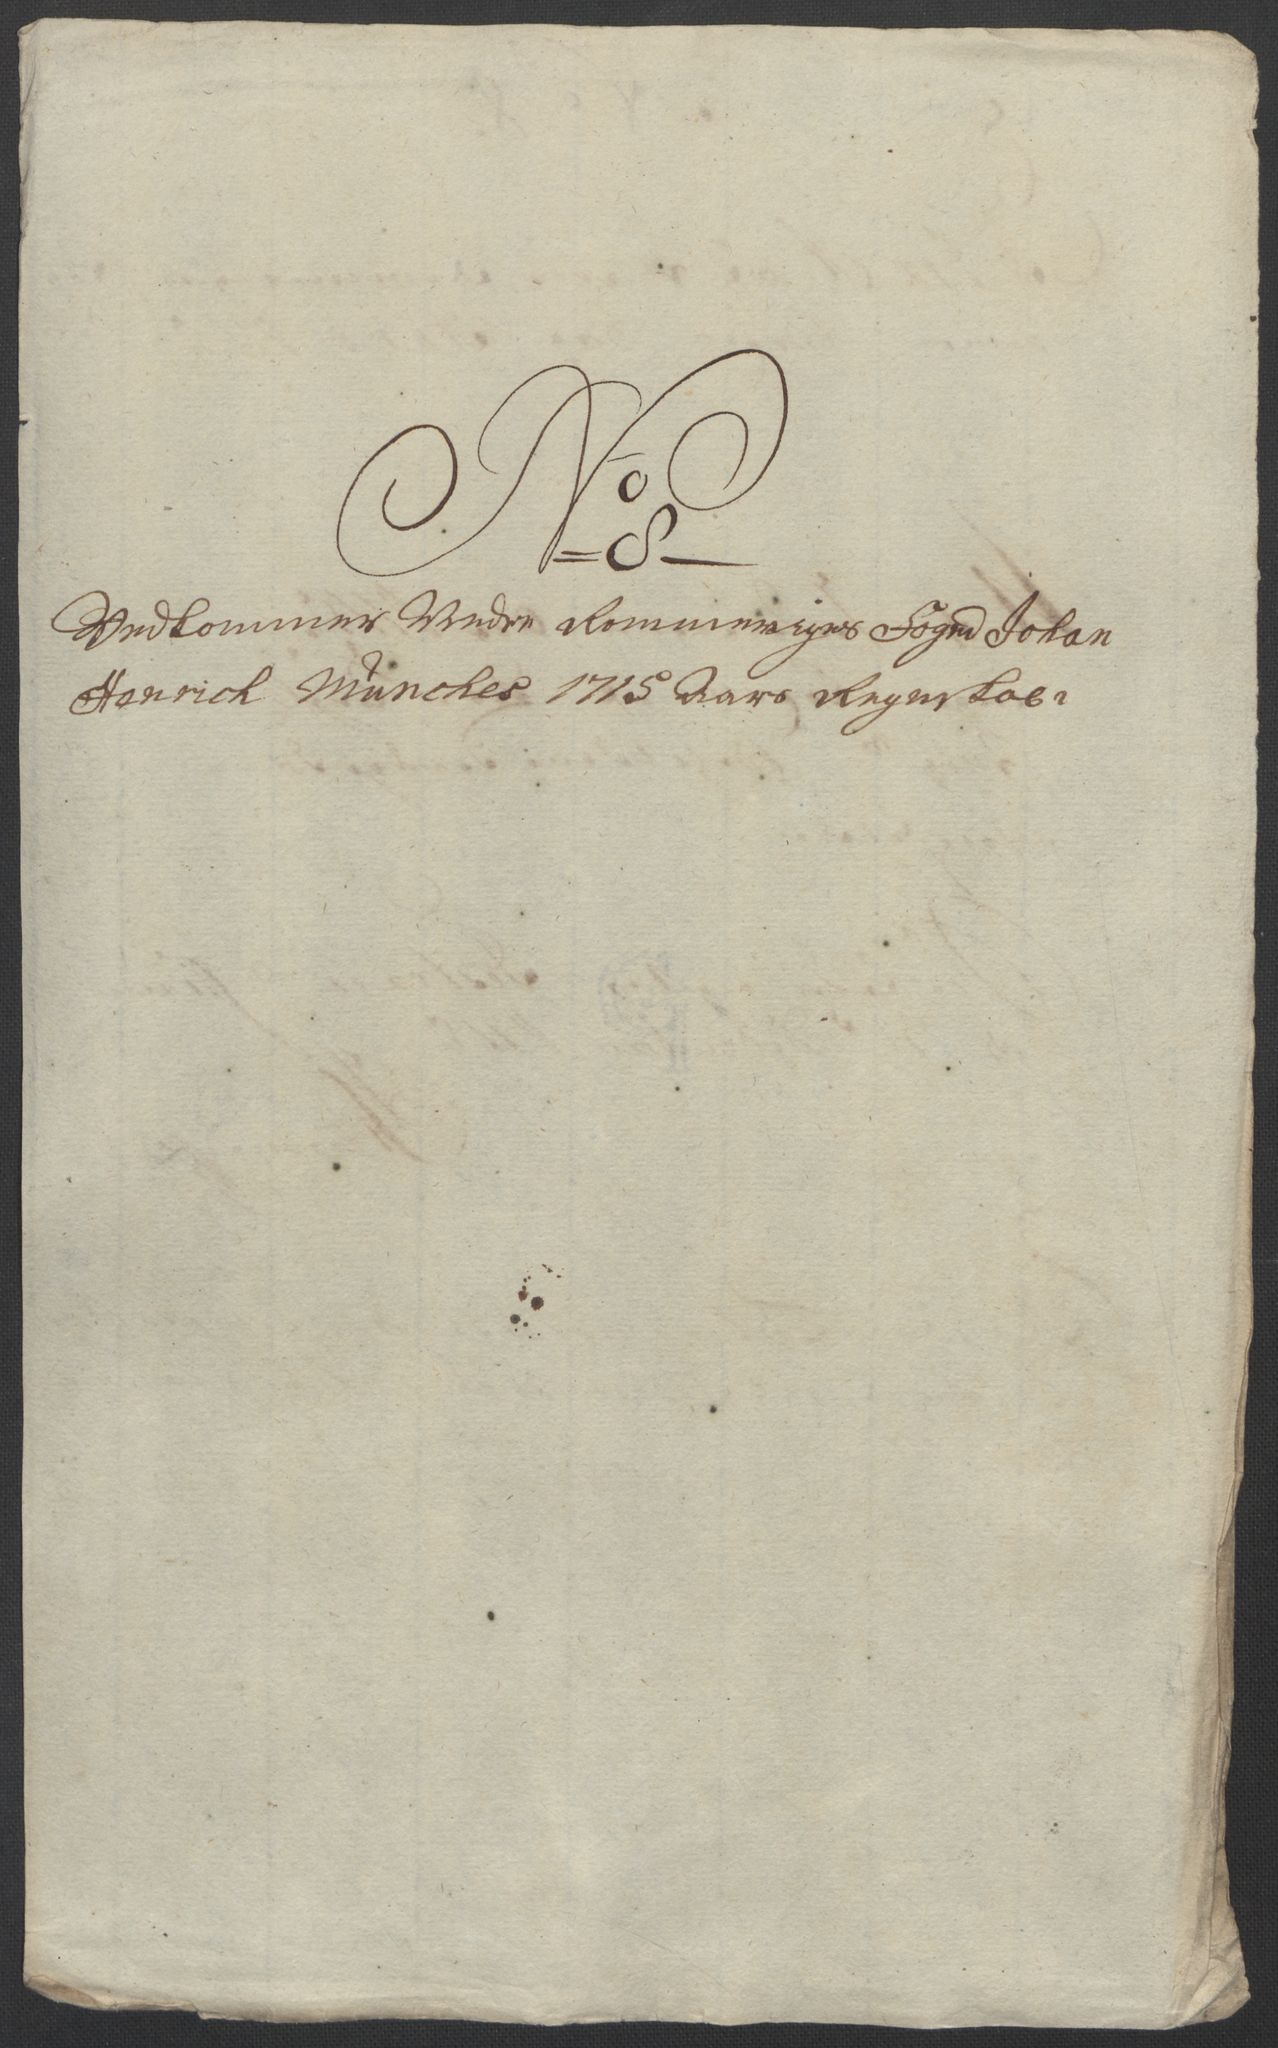 No
8
Vedkommer Nedre Rommerigers Foged Johan
Henrich Münches 1715 Aars Regenskab